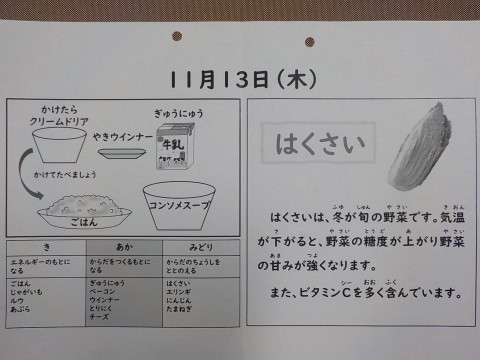 11月13日（木）
かけたら
クリームドリア
やきウインナー
ぎゅうにゅう
牛乳
かけてたべましょう
ごはん
コンソメスープ
き
あか
みどり
エネルギーのもとに
なる
からだをつくるもとに
なる
からだのちょうしを
ととのえる
ごはん
じゃがいも
ルウ
あぶら
ぎゅうにゅう
ベーコン
ウインナー
とりにく
チーズ
はくさい
エリンギ
にんじん
たまねぎ
はくさい
はくさいは、冬が旬の野菜です。気温
が下がると、野菜の糖度が上がり野菜
の甘みが強くなります。
また、ビタミンCを多く含んでいます。
ふゆ しゅん やさい きおん
さ やさい とうど あ やさい
あま つよ
シー おお ふく